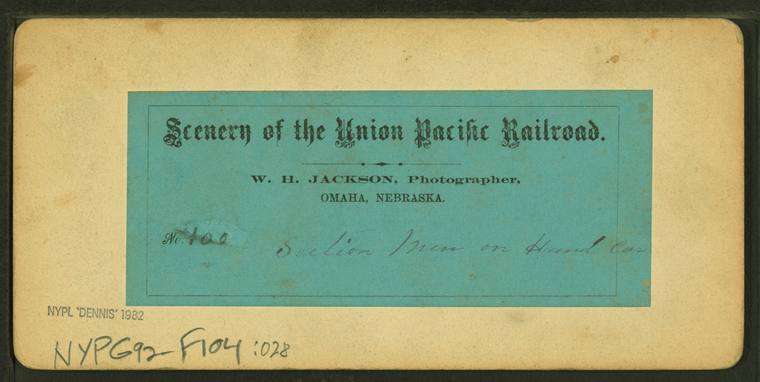 Scenery of the Union Pacific Railroad.
W. H. JACKSON, Photographer,
OMAHA, NEBRASKA.
No. 100 Section Men on Hand Car
NYPL 'DENNIS' 1982
NYPG92-F104 :028